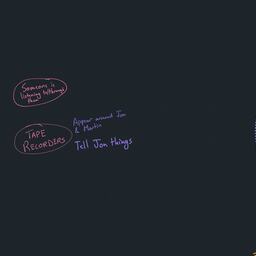 Someone is
listening to/through
them
TAPE
RECORDERS
Appear around Jon
& Martin
Tell Jon things